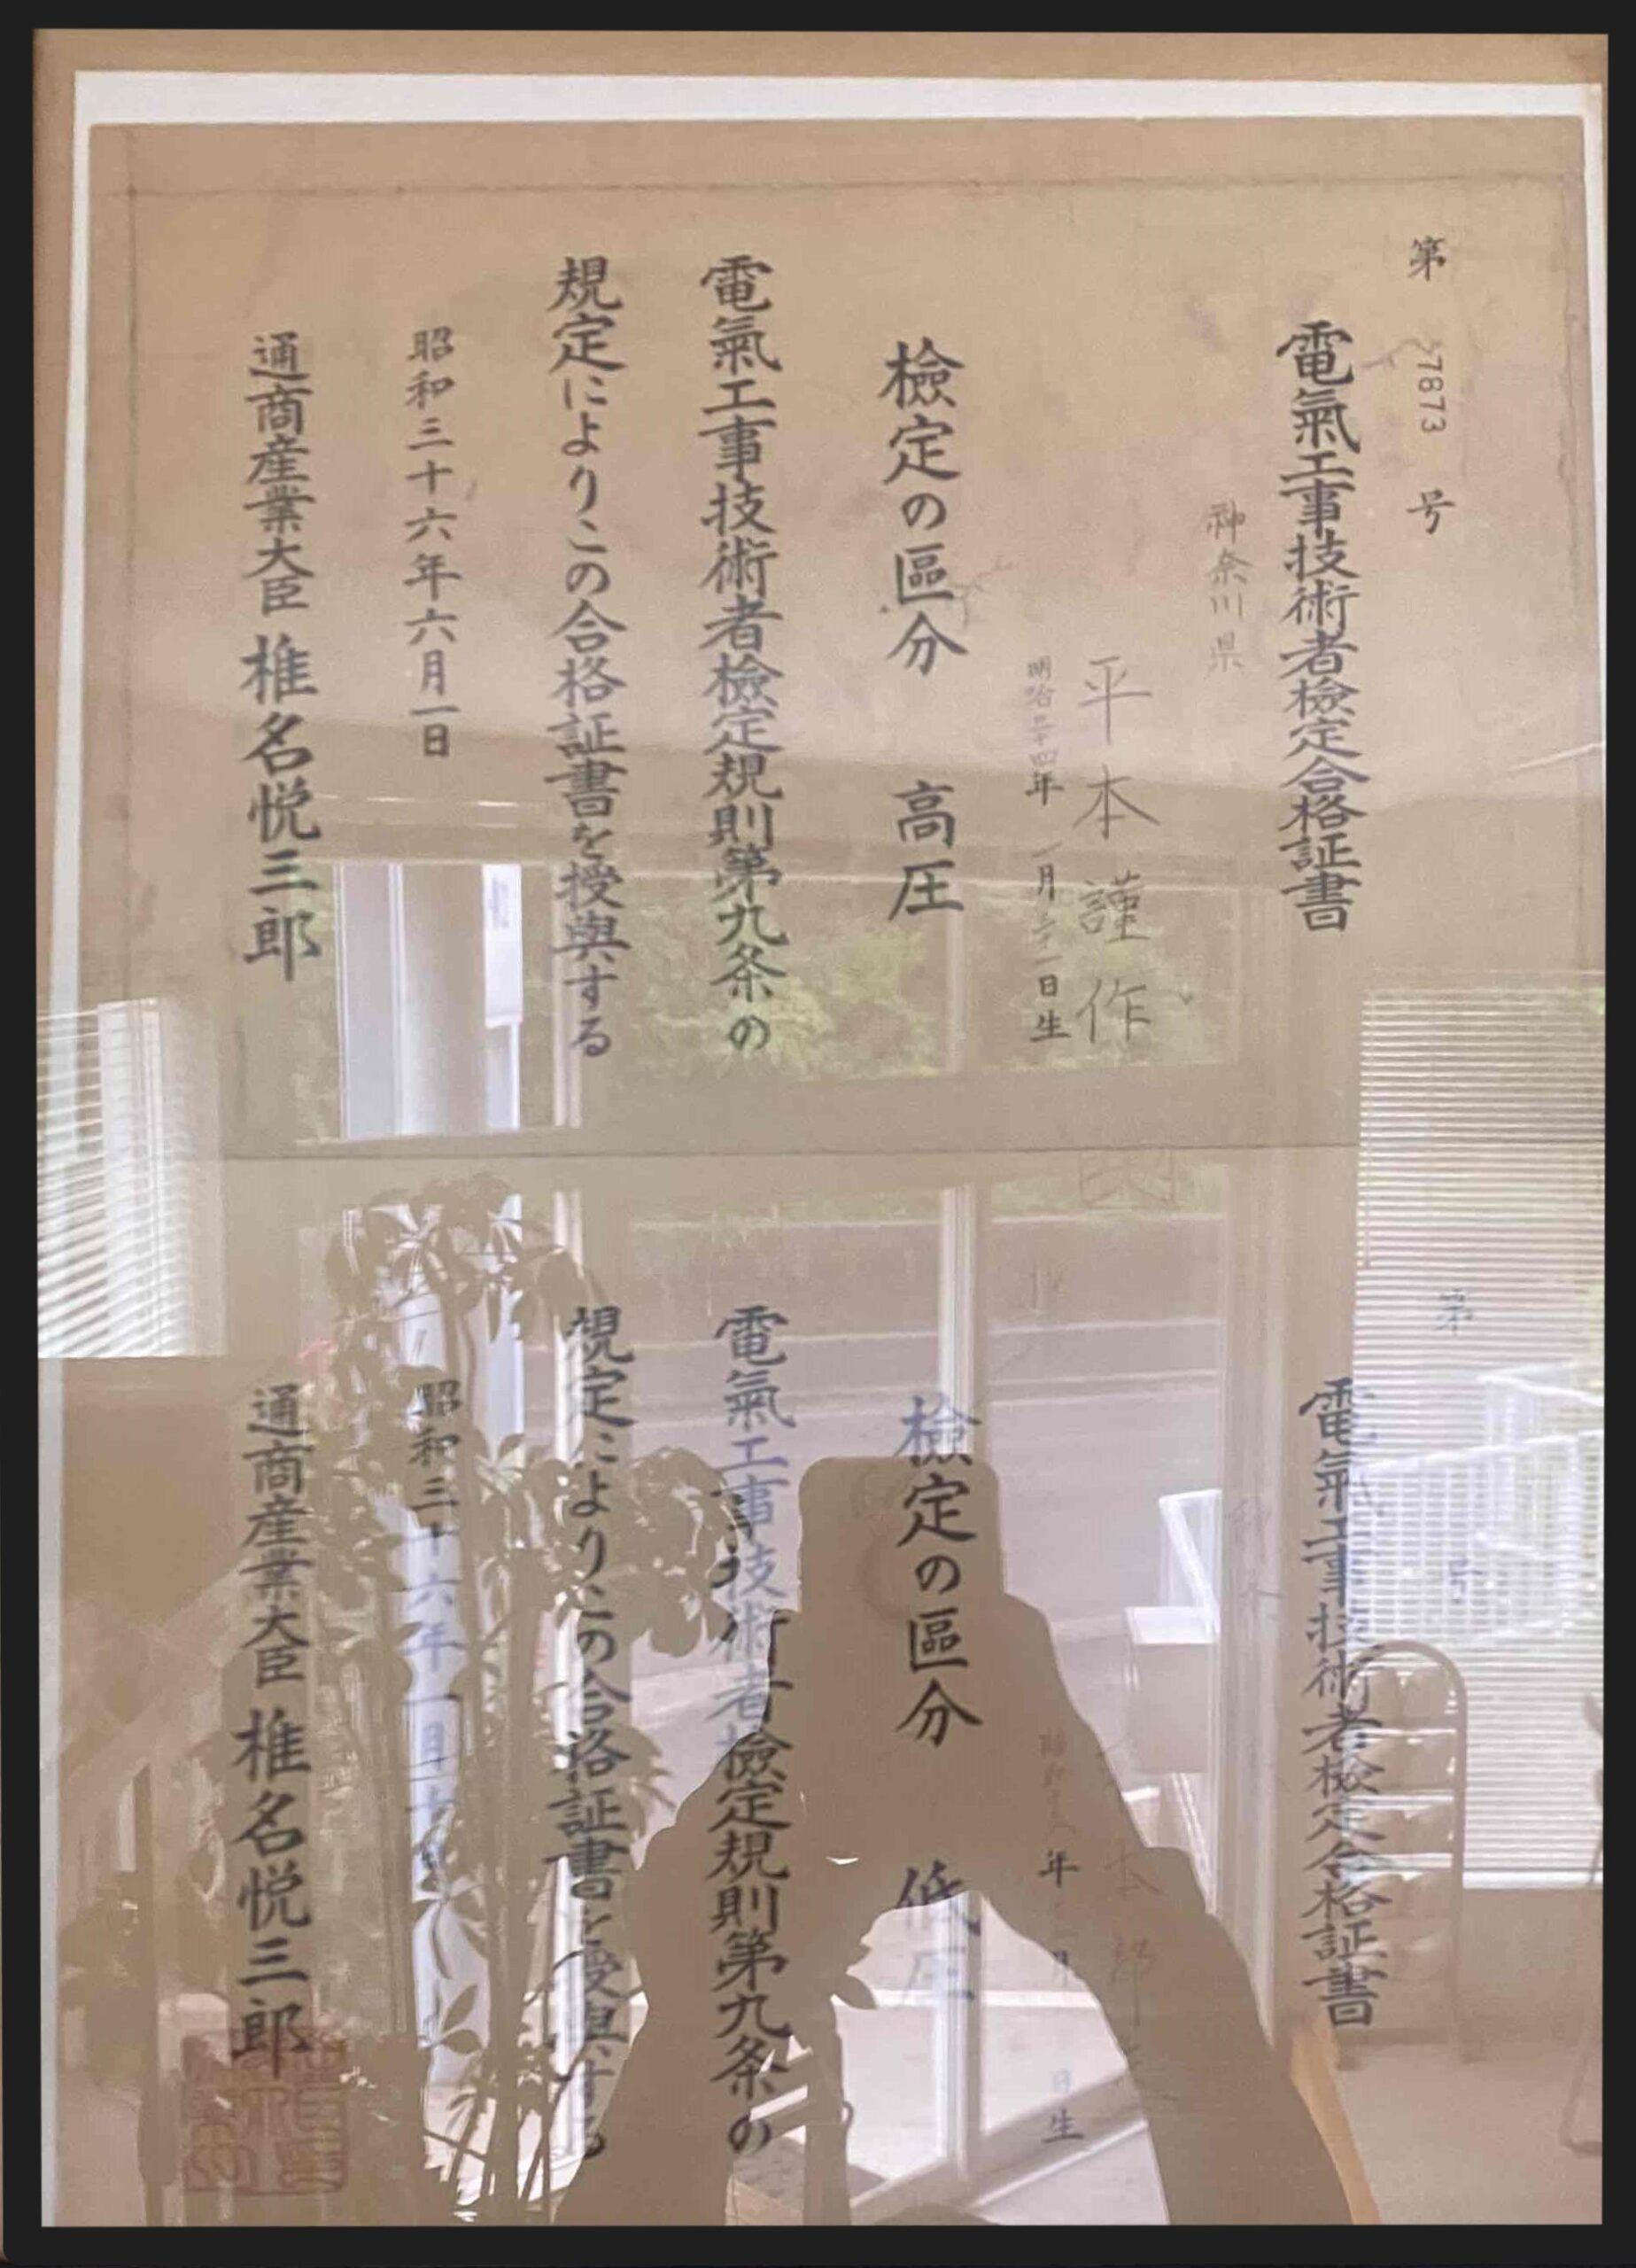 第 7873 号
電氣工事技術者檢定合格証書
神奈川県
平本謹作
明治三十四年一月三十一日生
檢定の區分 高圧
電氣工事技術者檢定規則第九条の
規定によりこの合格証書を授與する
昭和三十六年六月一日
通商産業大臣 椎名悦三郎
第 号
電氣工事技術者檢定合格証書
年 月 日生
檢定の區分 低圧
電氣工事技術者檢定規則第九条の
規定によりこの合格証書を授與する
昭和三十六年一月
通商産業大臣 椎名悦三郎